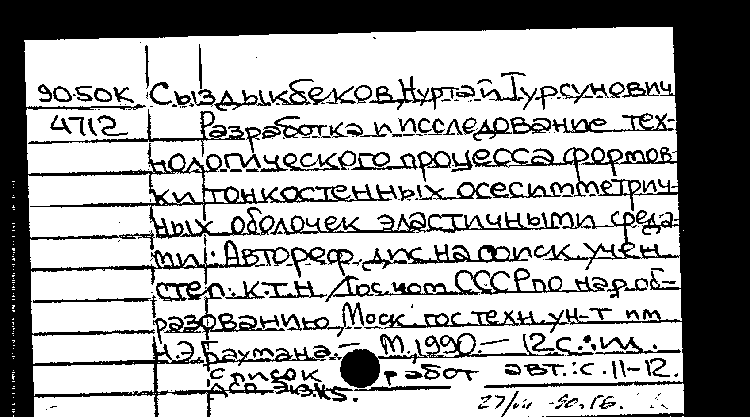 90-50К Сыздыкбеков, Нуртай Турсунович
4712 Разработка и исследование тех-
нологического процесса формов-
ки тонкостенных осесимметрич-
ных оболочек эластичными среда-
ми: Автореф. дис. на соиск. учен.
степ. к.т.н. / Гос. ком. СССР по нар. об-
разованию, Моск. гос. техн. ун-т им.
Н.Э. Баумана. – М., 1990. – 12 с.: ил.
Список работ авт.: с. 11-12.
Деп. экз.
27/ -90. Г6.